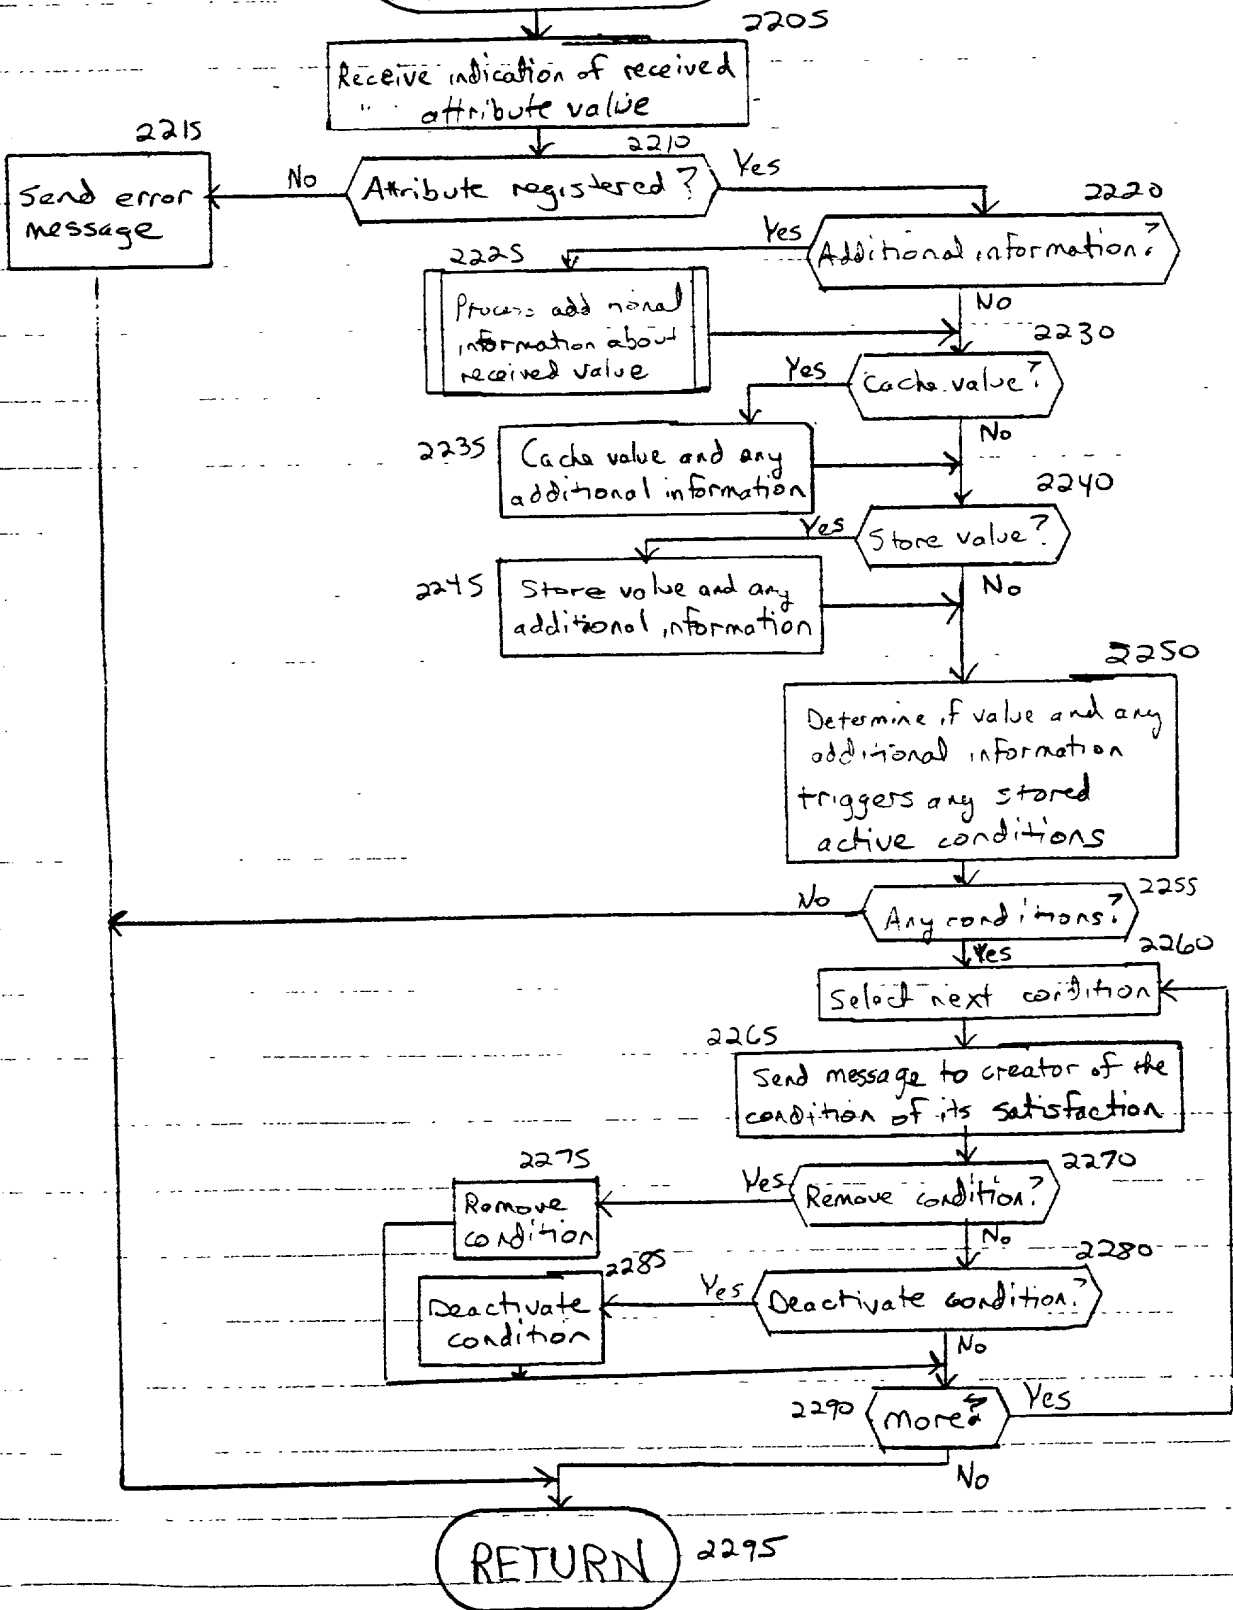 2205
Receive indication of received
attribute value
2210
2215
Send error
message
No
Attribute registered?
Yes
2220
Additional information?
Yes
2225
Process additional
information about
received value
No
2230
Cache value?
Yes
2235
Cache value and any
additional information
No
2240
Store value?
Yes
2245
Store value and any
additional information
No
2250
Determine if value and any
additional information
triggers any stored
active conditions
2255
No
Any conditions?
Yes
2260
Select next condition
2265
Send message to creator of the
condition of its satisfaction
2270
2275
Yes
Remove condition?
Remove
condition
No
2280
2285
Yes
Deactivate condition?
Deactivate
condition
No
2290
More?
Yes
No
RETURN
2295